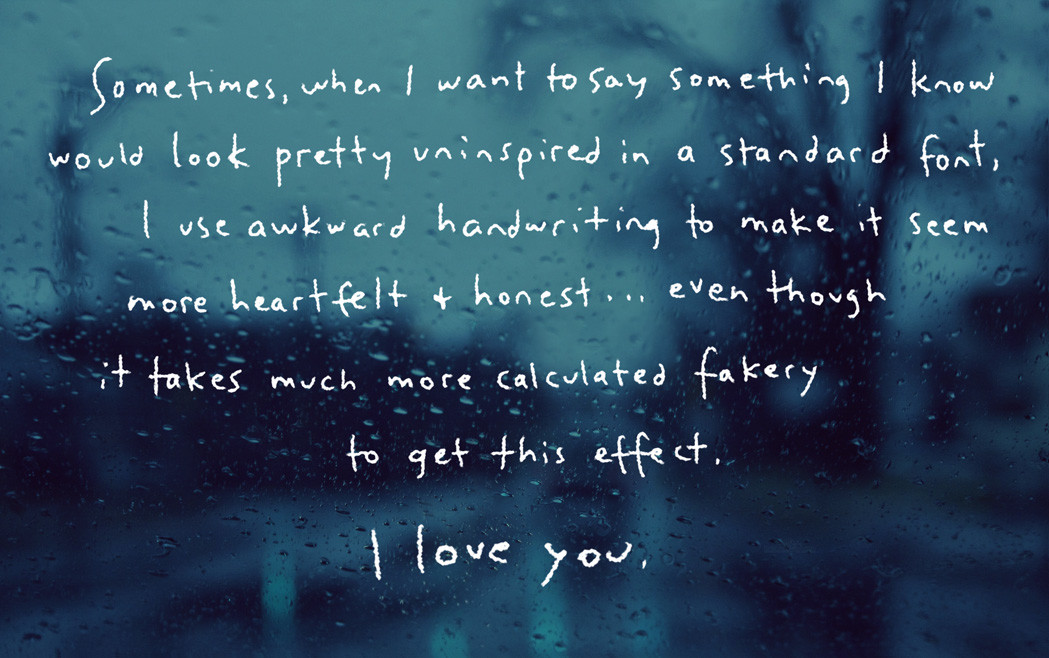 Sometimes, when I want to say something I know
would look pretty uninspired in a standard font,
I use awkward handwriting to make it seem
more heartfelt + honest... even though
it takes much more calculated fakery
to get this effect.
I love you.